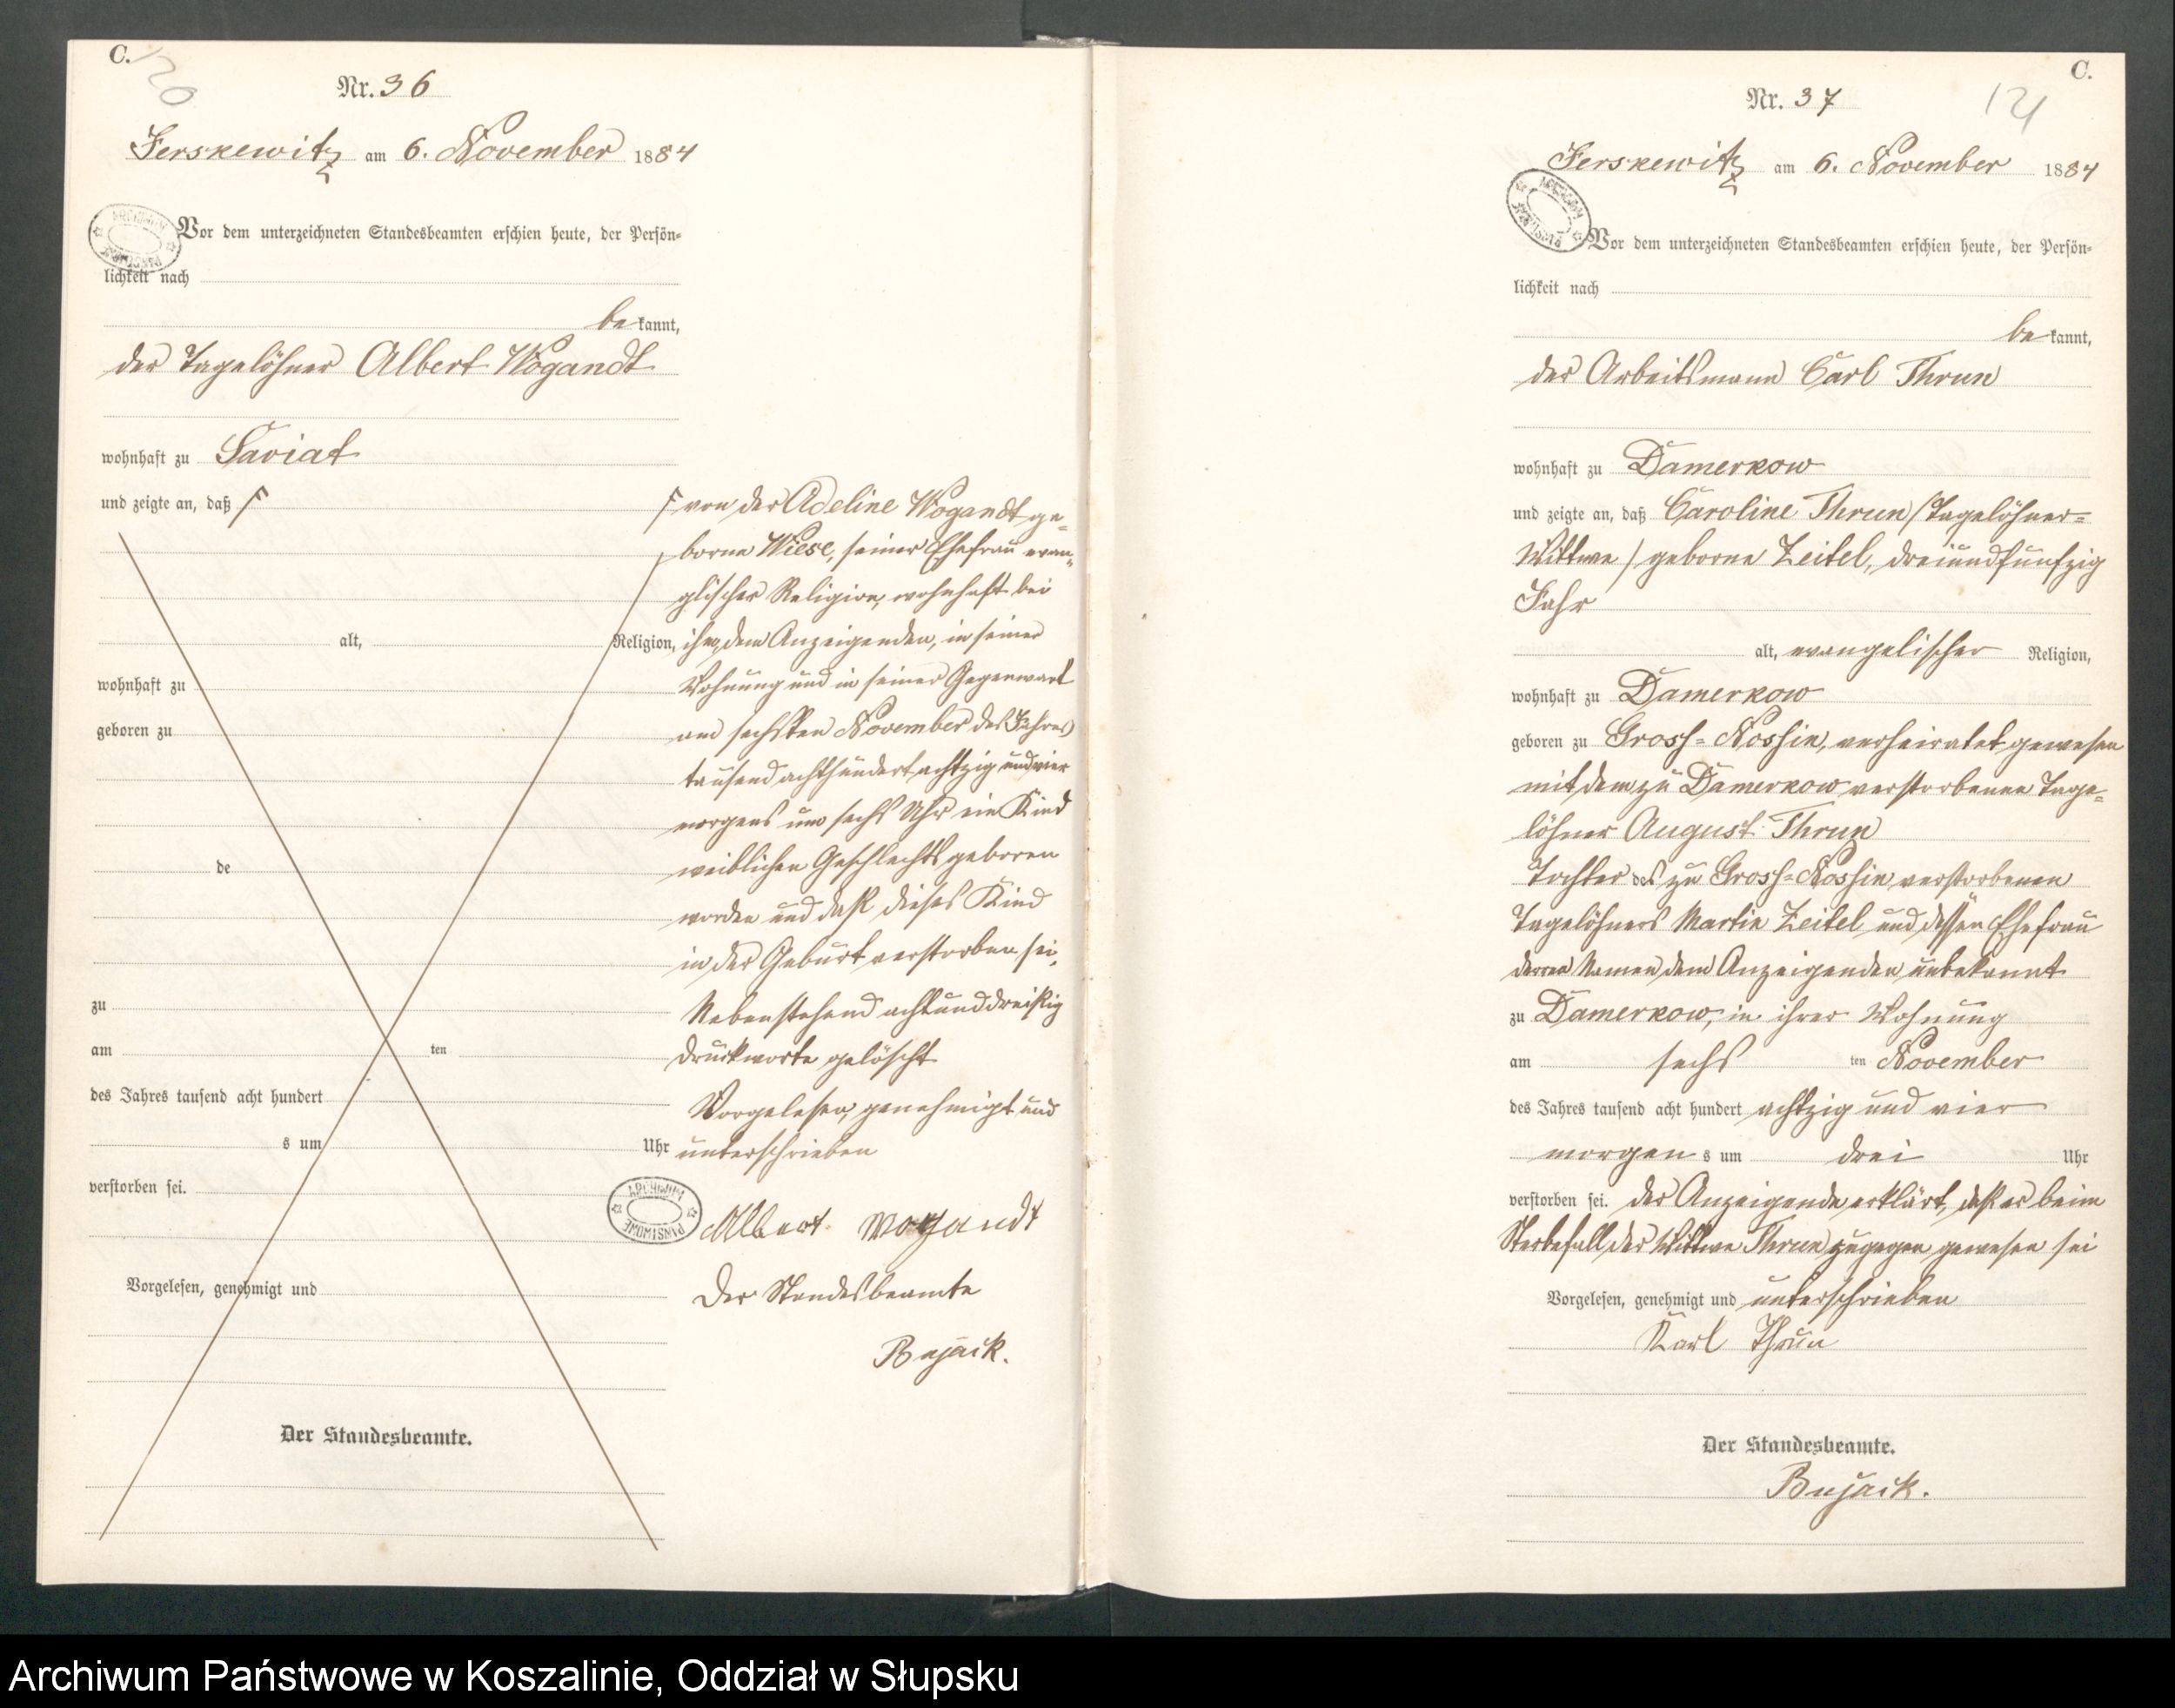 C.
120
Nr. 36
Jerskewitz am 6. November 1884
ARCHIWUM PAŃSTWOWE
Vor dem unterzeichneten Standesbeamten erschien heute, der Persön-
lichkeit nach
bekannt,
der Tagelöhner Albert Wogandt
wohnhaft zu Saviat
und zeigte an, daß
alt, Religion,
wohnhaft zu
geboren zu
de
zu
am ten
des Jahres tausend acht hundert
s um Uhr
verstorben sei.
Vorgelesen, genehmigt und
Der Standesbeamte.
von der Adeline Wogandt ge-
borne Wiese, seiner Ehefrau evan-
glischer Religion, wohnhaft bei
ihm, dem Anzeigenden, in seiner
Wohnung und in seiner Gegenwart
am sechsten November des Jahres
tausend achthundert achtzig und vier
morgens um sechs Uhr ein Kind
weiblichen Geschlechts geboren
worden und daß dieses Kind
in der Geburt verstorben sei.
Nebenstehend achtunddreißig
Druckworte gelöscht
Vorgelesen, genehmigt und
unterschrieben
ARCHIWUM PAŃSTWOWE
Albert Wogandt
Der Standesbeamte
Bujack.
C.
121
Nr. 37
Jerskewitz am 6. November 1884
ARCHIWUM PAŃSTWOWE
Vor dem unterzeichneten Standesbeamten erschien heute, der Persön-
lichkeit nach
bekannt,
der Arbeitsmann Carl Thrun
wohnhaft zu Damerkow
und zeigte an, daß Caroline Thrun (Tagelöhner-
Wittwe) geborne Zeitel, dreiundfunfzig
Jahr
alt, evangelischer Religion,
wohnhaft zu Damerkow
geboren zu Gross-Nossin, verheiratet gewesen
mit dem zu Damerkow verstorbenen Tage-
löhner August Thrun
Tochter des zu Gross-Nossin verstorbenen
Tagelöhners Martin Zeitel und dessen Ehefrau
deren Namen dem Anzeigenden unbekannt
zu Damerkow, in ihrer Wohnung
am sechs ten November
des Jahres tausend acht hundert achtzig und vier
morgens um drei Uhr
verstorben sei. der Anzeigende erklärt, daß er beim
Sterbefall der Wittwe Thrun zugegen gewesen sei
Vorgelesen, genehmigt und unterschrieben
Karl Thrun
Der Standesbeamte.
Bujack.
Archiwum Państwowe w Koszalinie, Oddział w Słupsku